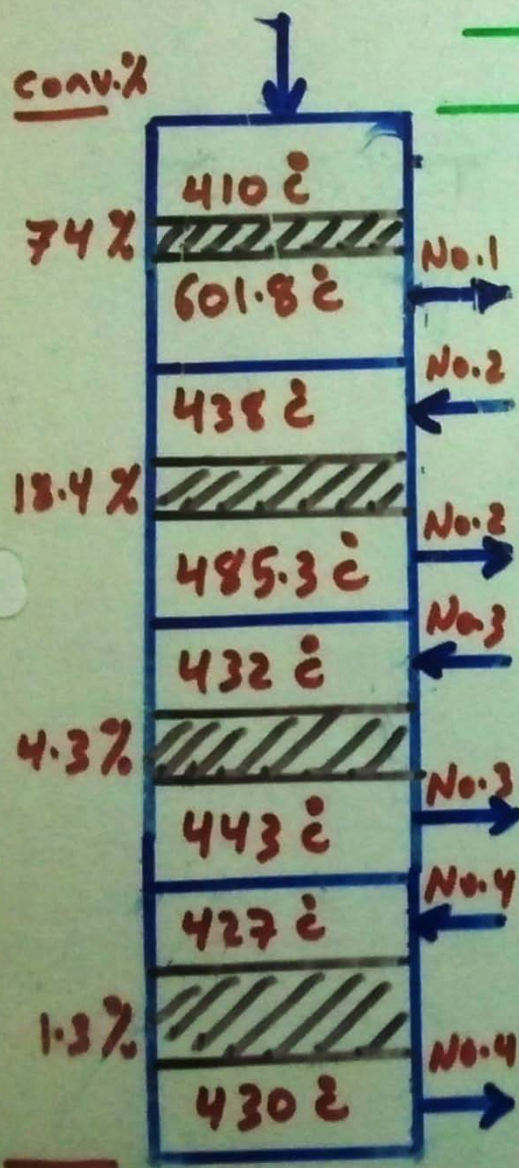 conv.%
410 °C
74%
601.8 °C
No.1
No.2
438 °C
18.4%
485.3 °C
No.2
No.3
432 °C
4.3%
443 °C
No.3
No.4
427 °C
1.3%
430 °C
No.4